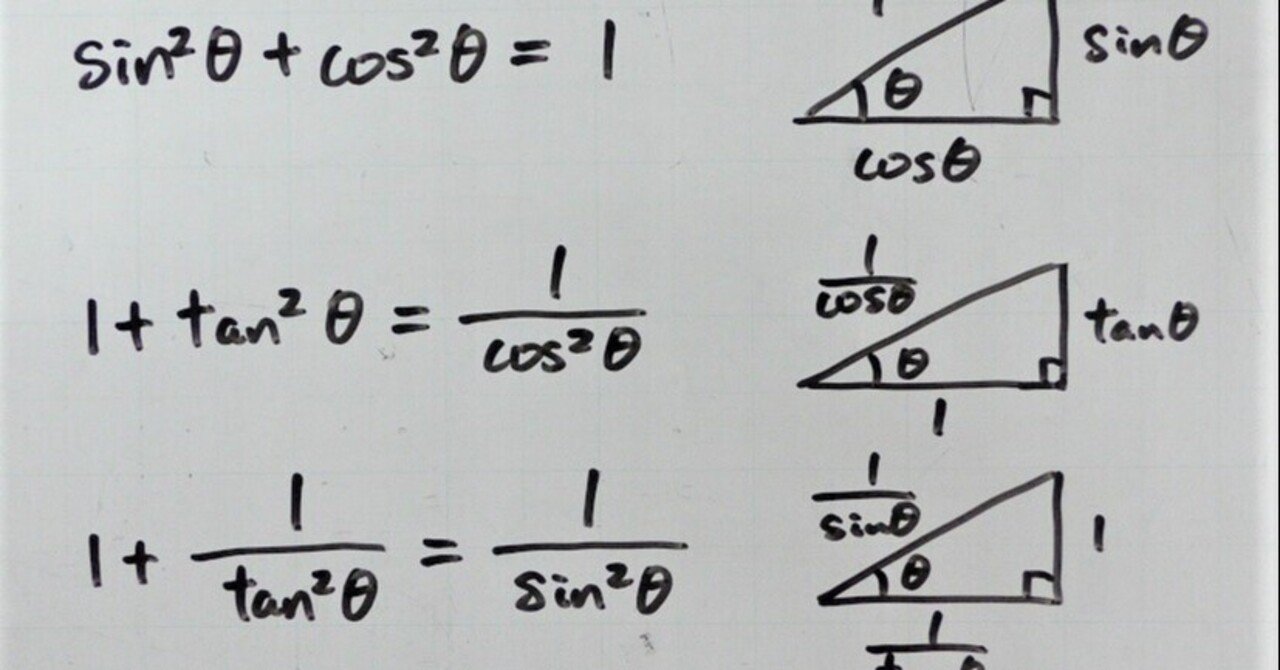 sin²θ + cos²θ = 1
θ
sinθ
cosθ
1 + tan²θ = 1/cos²θ
1/cosθ
θ
tanθ
1
1 + 1/tan²θ = 1/sin²θ
1/sinθ
θ
1